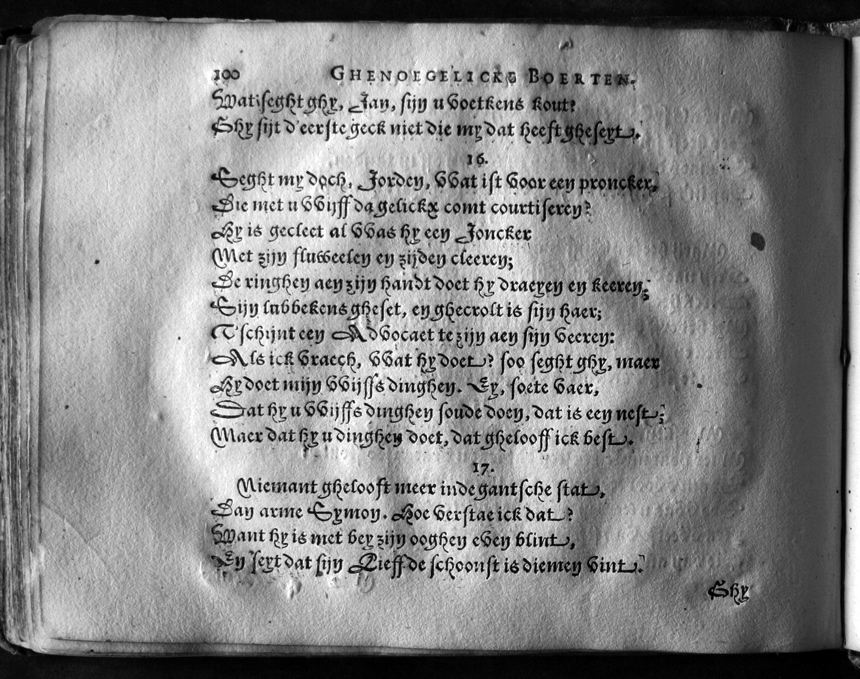 100 GHENOEGELICKE BOERTEN.
Wat seght ghy, Jan, sijn u voetkens kout?
Ghy sijt d'eerste geck niet die my dat heeft gheseyt.
16.
Seght my doch, Jorden, wat ist voor een proncker,
Die met u wijff dagelickx comt courtiseren?
Hy is gecleet al was hy een Joncker
Met zijn fluweelen en zijden cleeren;
De ringhen aen zijn handt doet hy draeyen en keeren;
Sijn lubbekens gheset, en ghecrolt is sijn haer;
T'schijnt een Advocaet te zijn aen sijn veeren:
Als ick vraech, wat hy doet? soo seght ghy, maer
Hy doet mijn wijffs dinghen. Ey, soete vaer,
Dat hy u wijffs dinghen soude doen, dat is een nest;
Maer dat hy u dinghen doet, dat ghelooff ick best.
17.
Niemant ghelooft meer inde gantsche stat,
Dan arme Symon. Hoe verstae ick dat?
Want hy is met bey zijn ooghen even blint,
En seyt dat sijn Lieff de schoonst is diemen vint.
Ghy